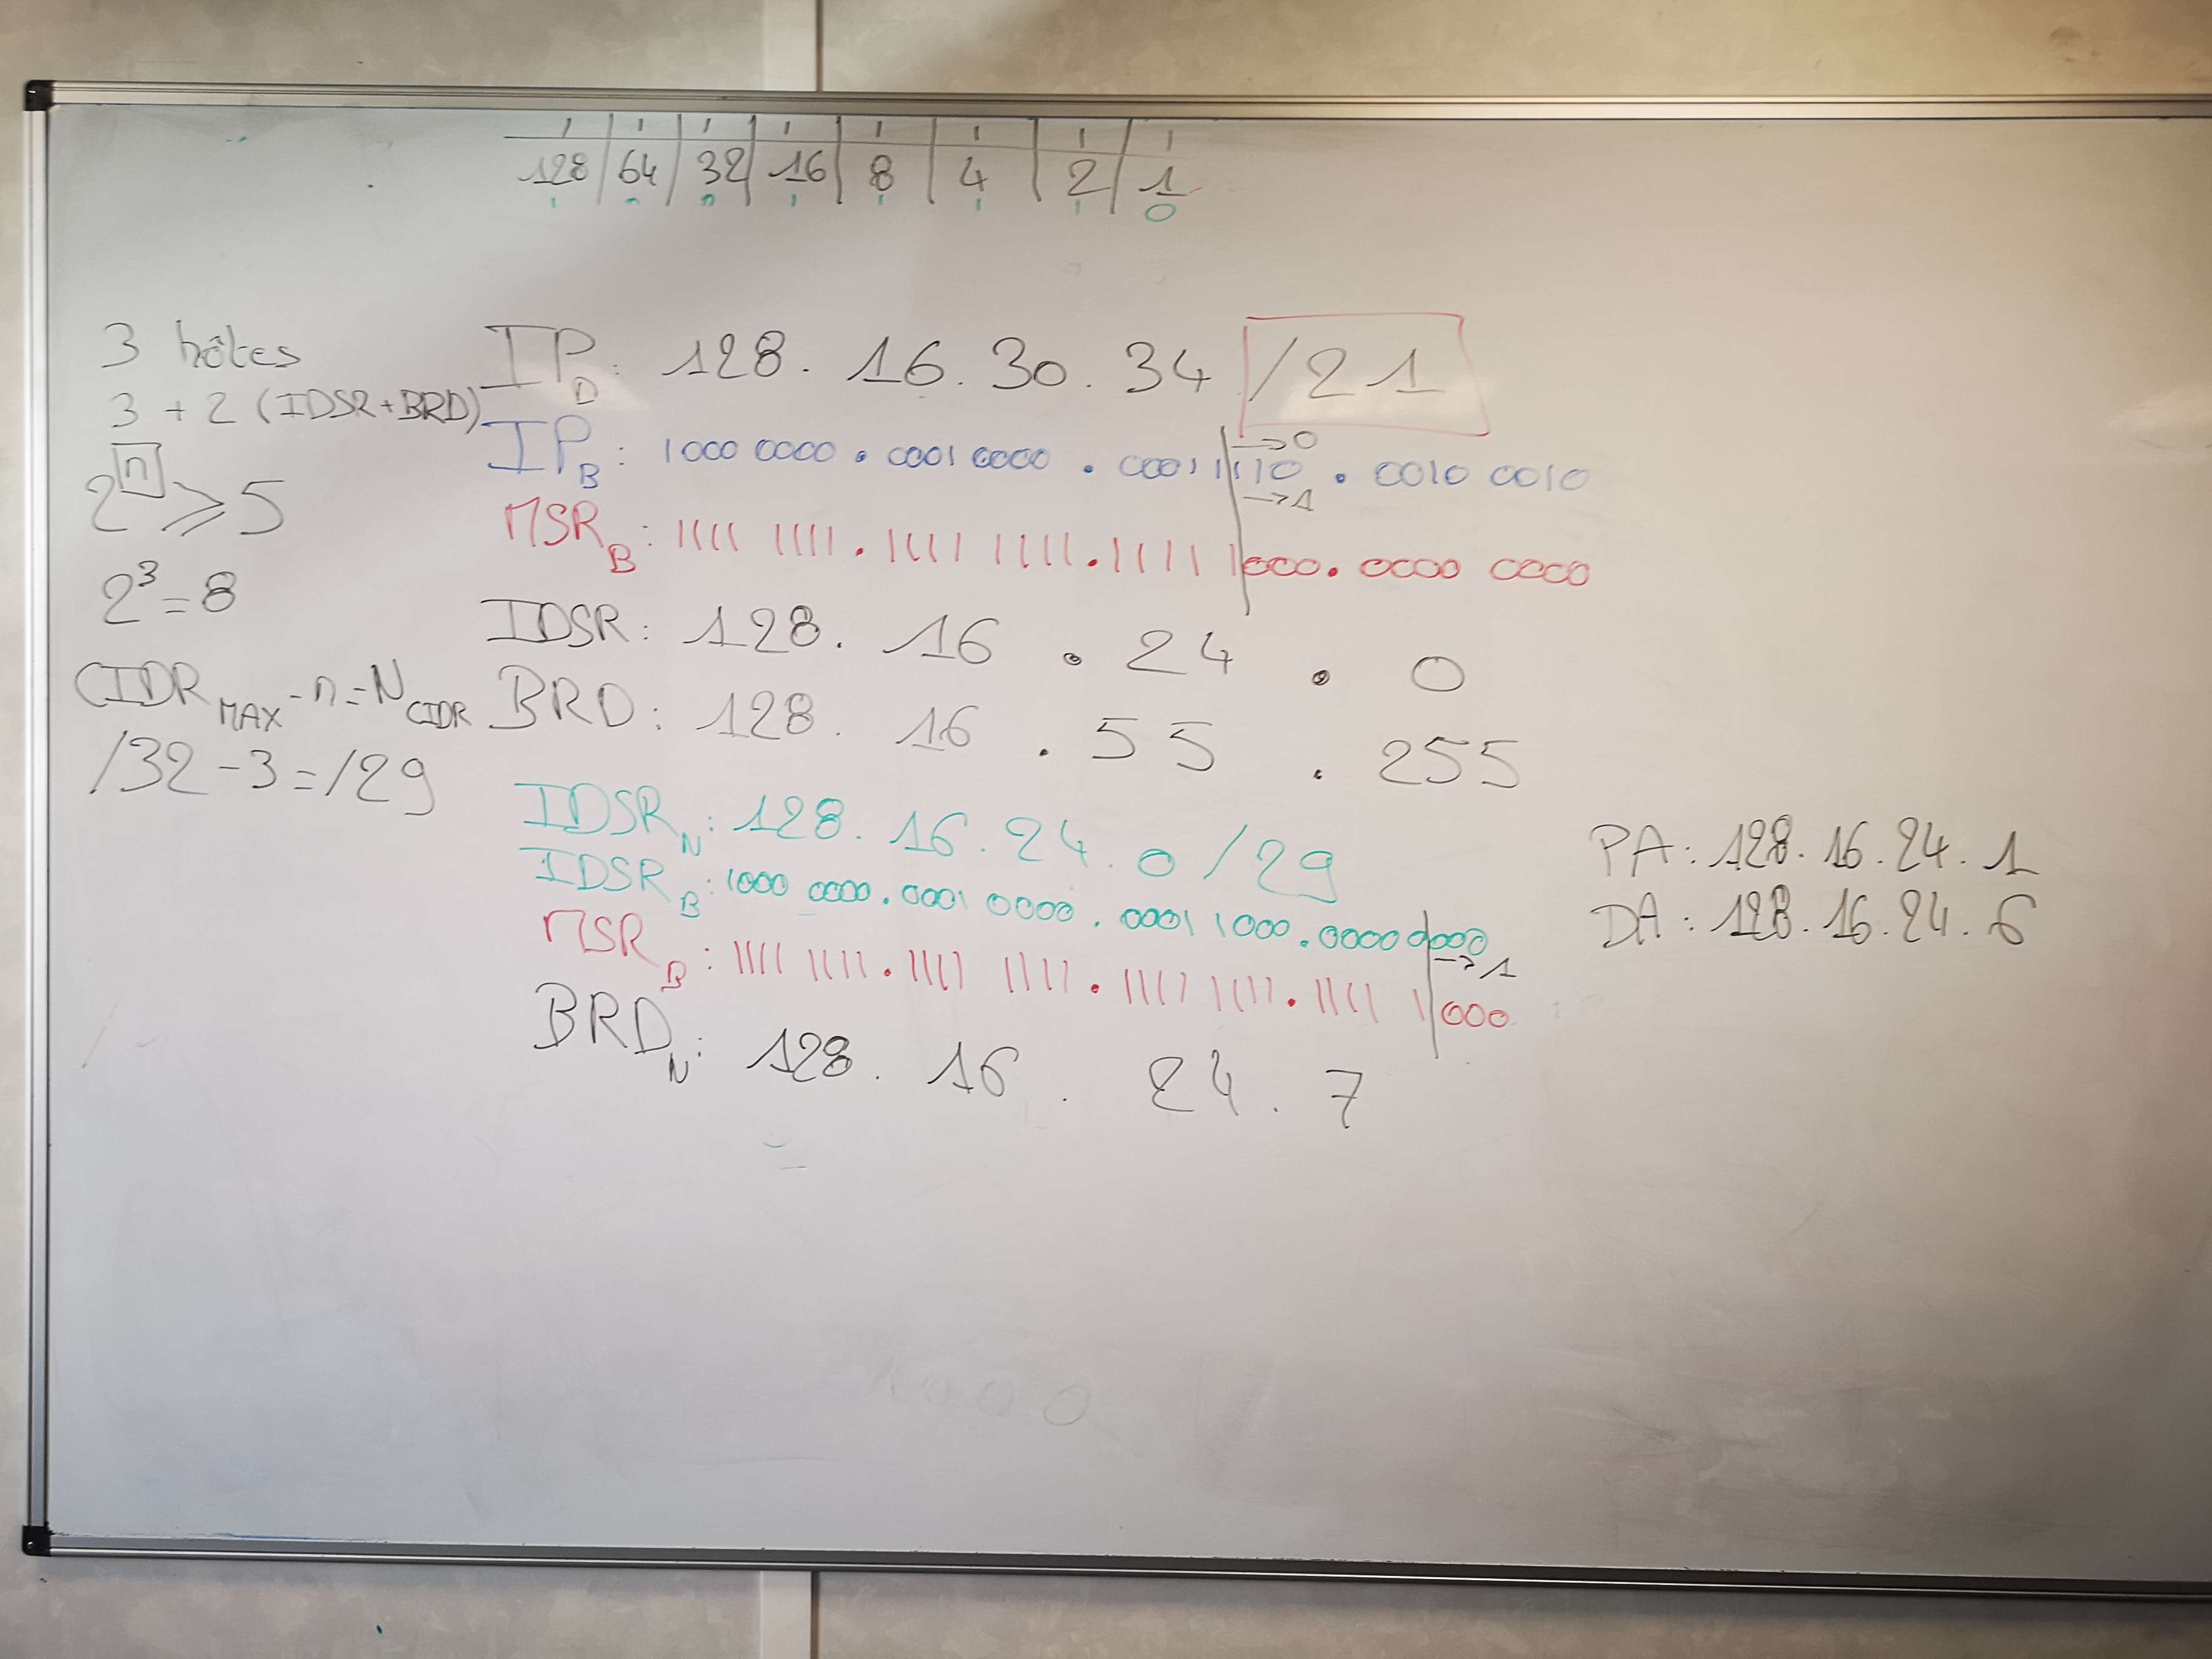 1 1 1 1 1 1 1 1
128 64 32 16 8 4 2 1
3 hôtes
3 + 2 (IDSR+BRD)
2^n ⩾ 5
2³ = 8
CIDR MAX - n = N CIDR
/32 - 3 = /29
IP D : 128. 16. 30. 34 /21
→0
IP B : 1000 0000 . 0001 0000 . 0001 1110 . 0010 0010
→1
MSR B : 1111 1111 . 1111 1111 . 1111 1000 . 0000 0000
IDSR : 128. 16 . 24 . 0
BRD : 128. 16 . 55 . 255
IDSR N : 128. 16. 24. 0 /29
IDSR B : 1000 0000 . 0001 0000 . 0001 1000 . 0000 0000
→1
MSR B : 1111 1111 . 1111 1111 . 1111 1111 . 1111 1000
BRD N : 128. 16 . 24 . 7
PA : 128. 16. 24. 1
DA : 128. 16. 24. 6